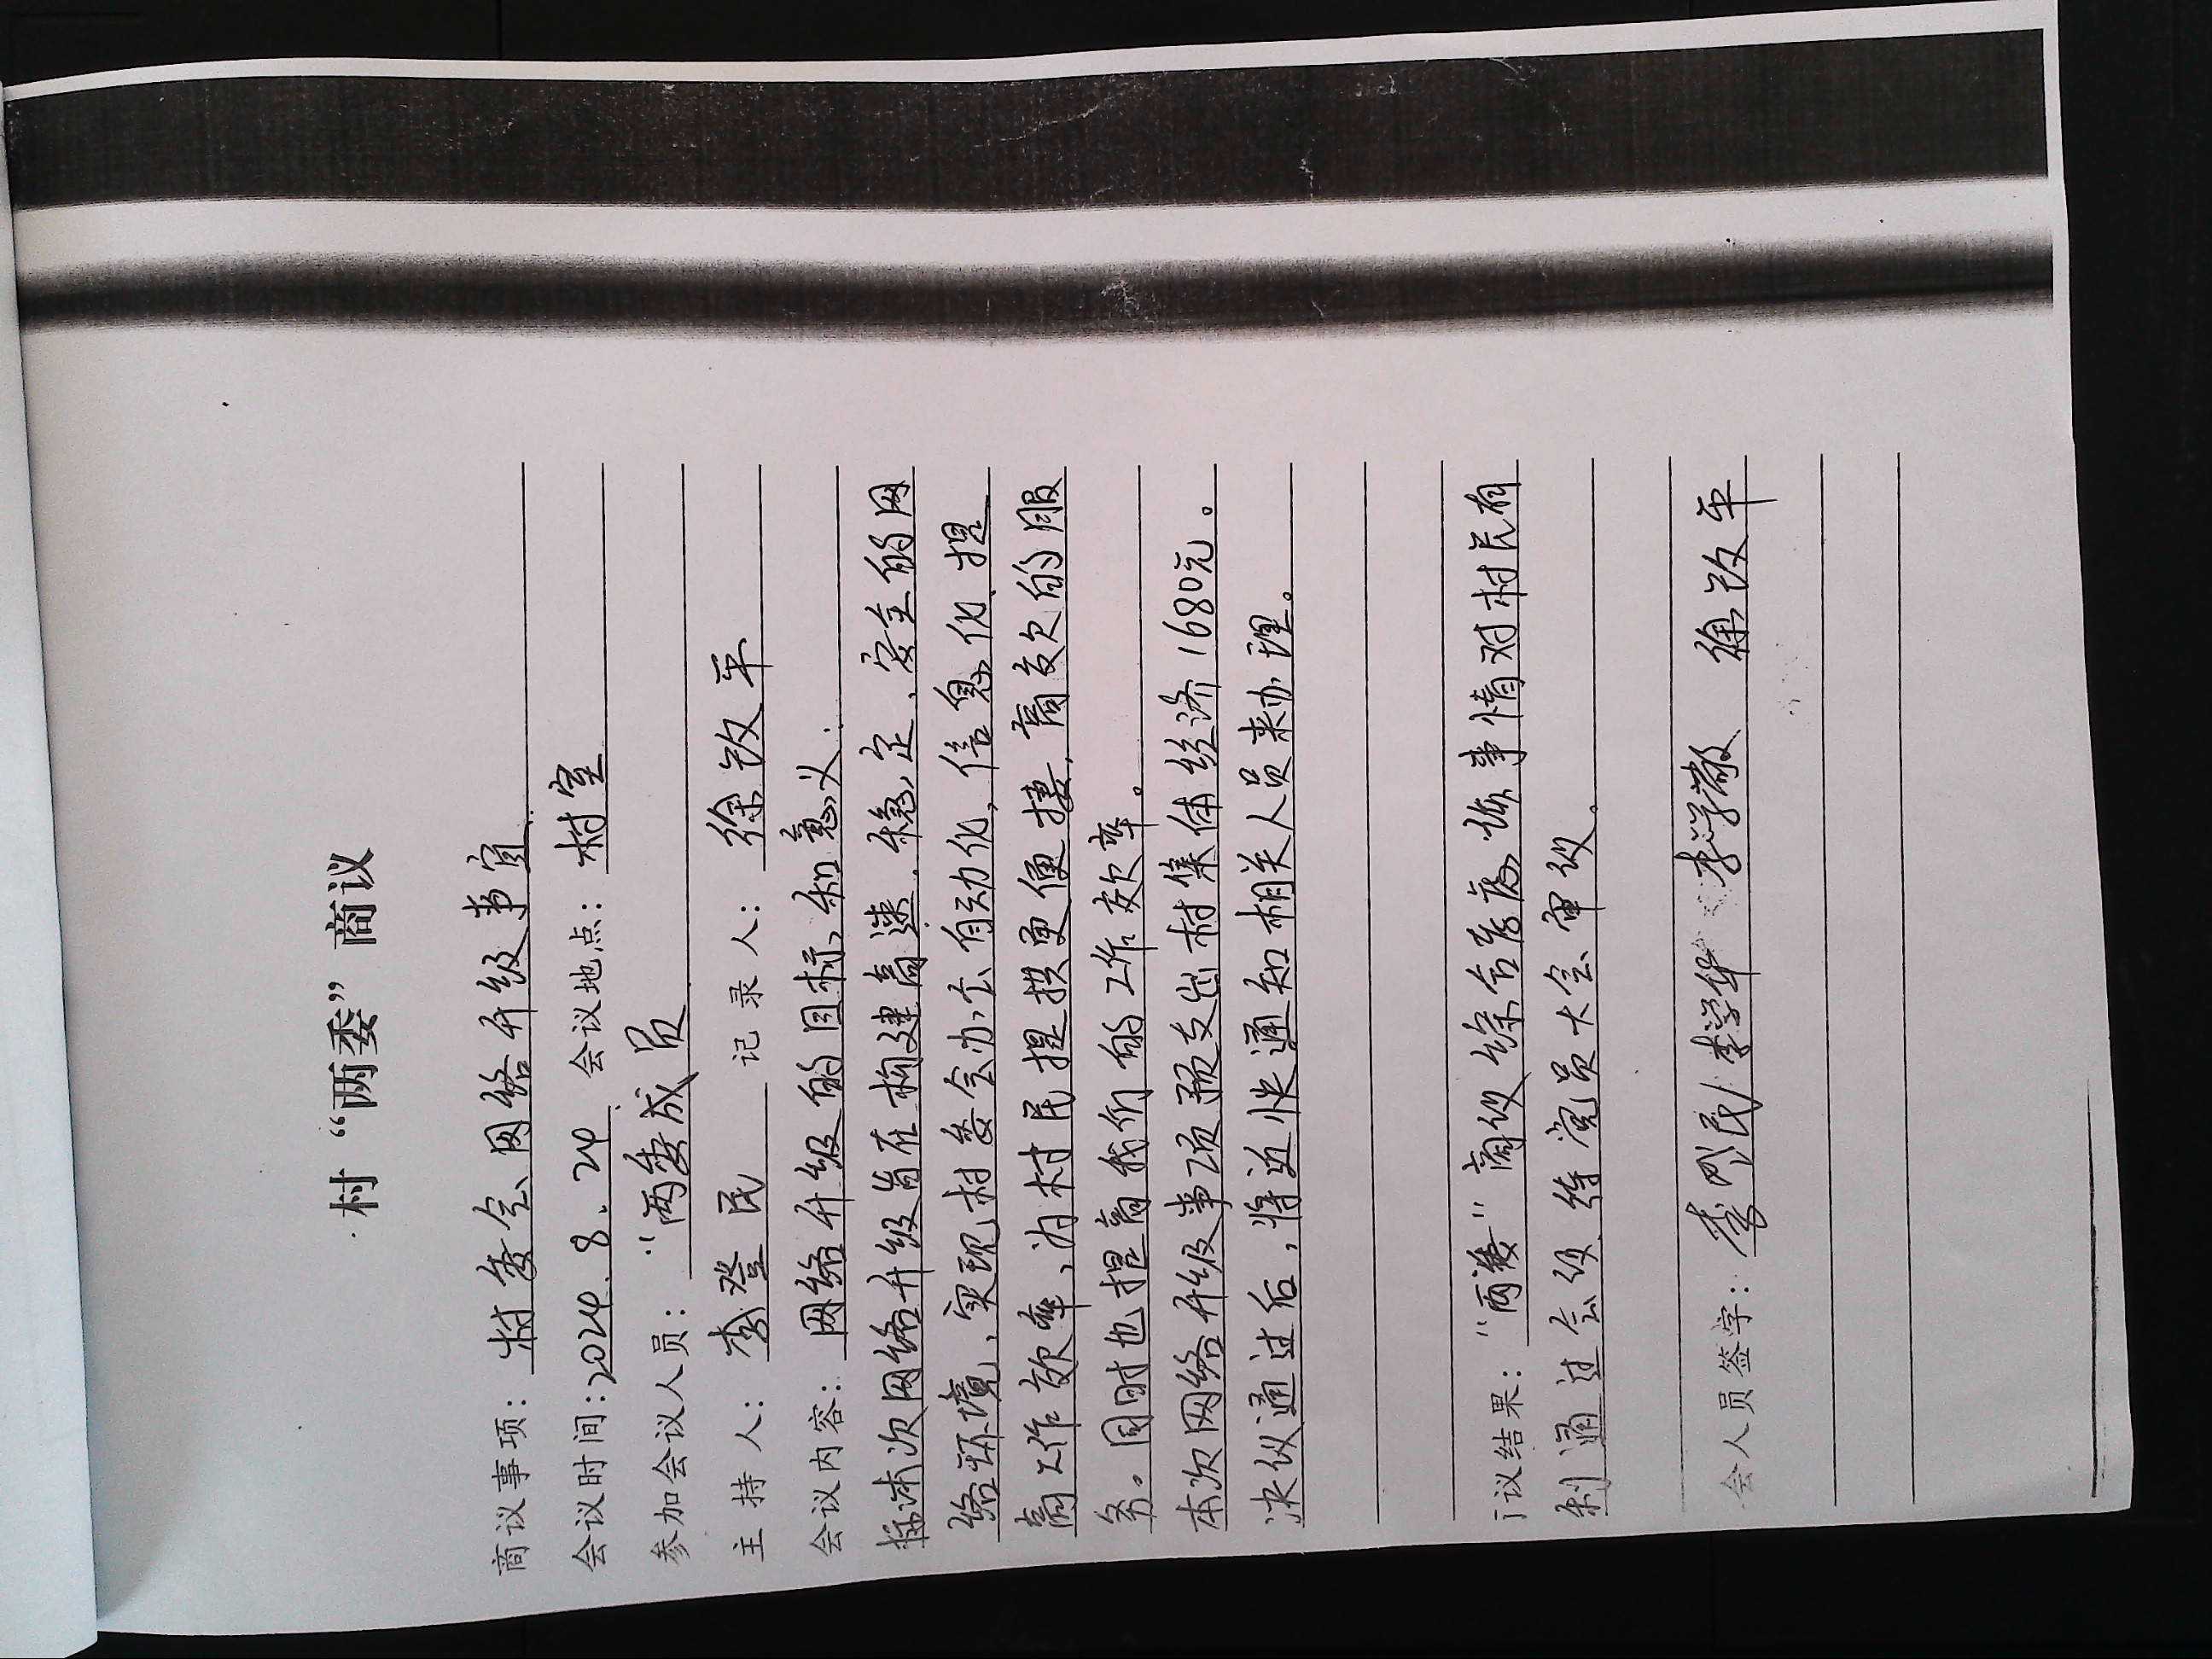 村“两委”商议
商议事项：村委会网络升级事宜
会议时间：2024.8.24 会议地点：村室
参加会议人员：“两委成员
主持人：李登民 记录人：徐改平
会议内容：网络升级的目标和意义.
本次网络升级旨在构建高速、稳定、安全的网
络环境、实现村委会办公自动化，信息化、提
高工作效率、为村民提供更便捷、高效的服
务。同时也提高我们的工作效率。
本次网络升级事项预支出村集体经济1680元。
决议通过后，将近快通知相关人员来办理。
议结果：“两委”商议综合考虑该事情对村民有
利通过会议 待党员大会审议。
会人员签字：李学华 徐改平